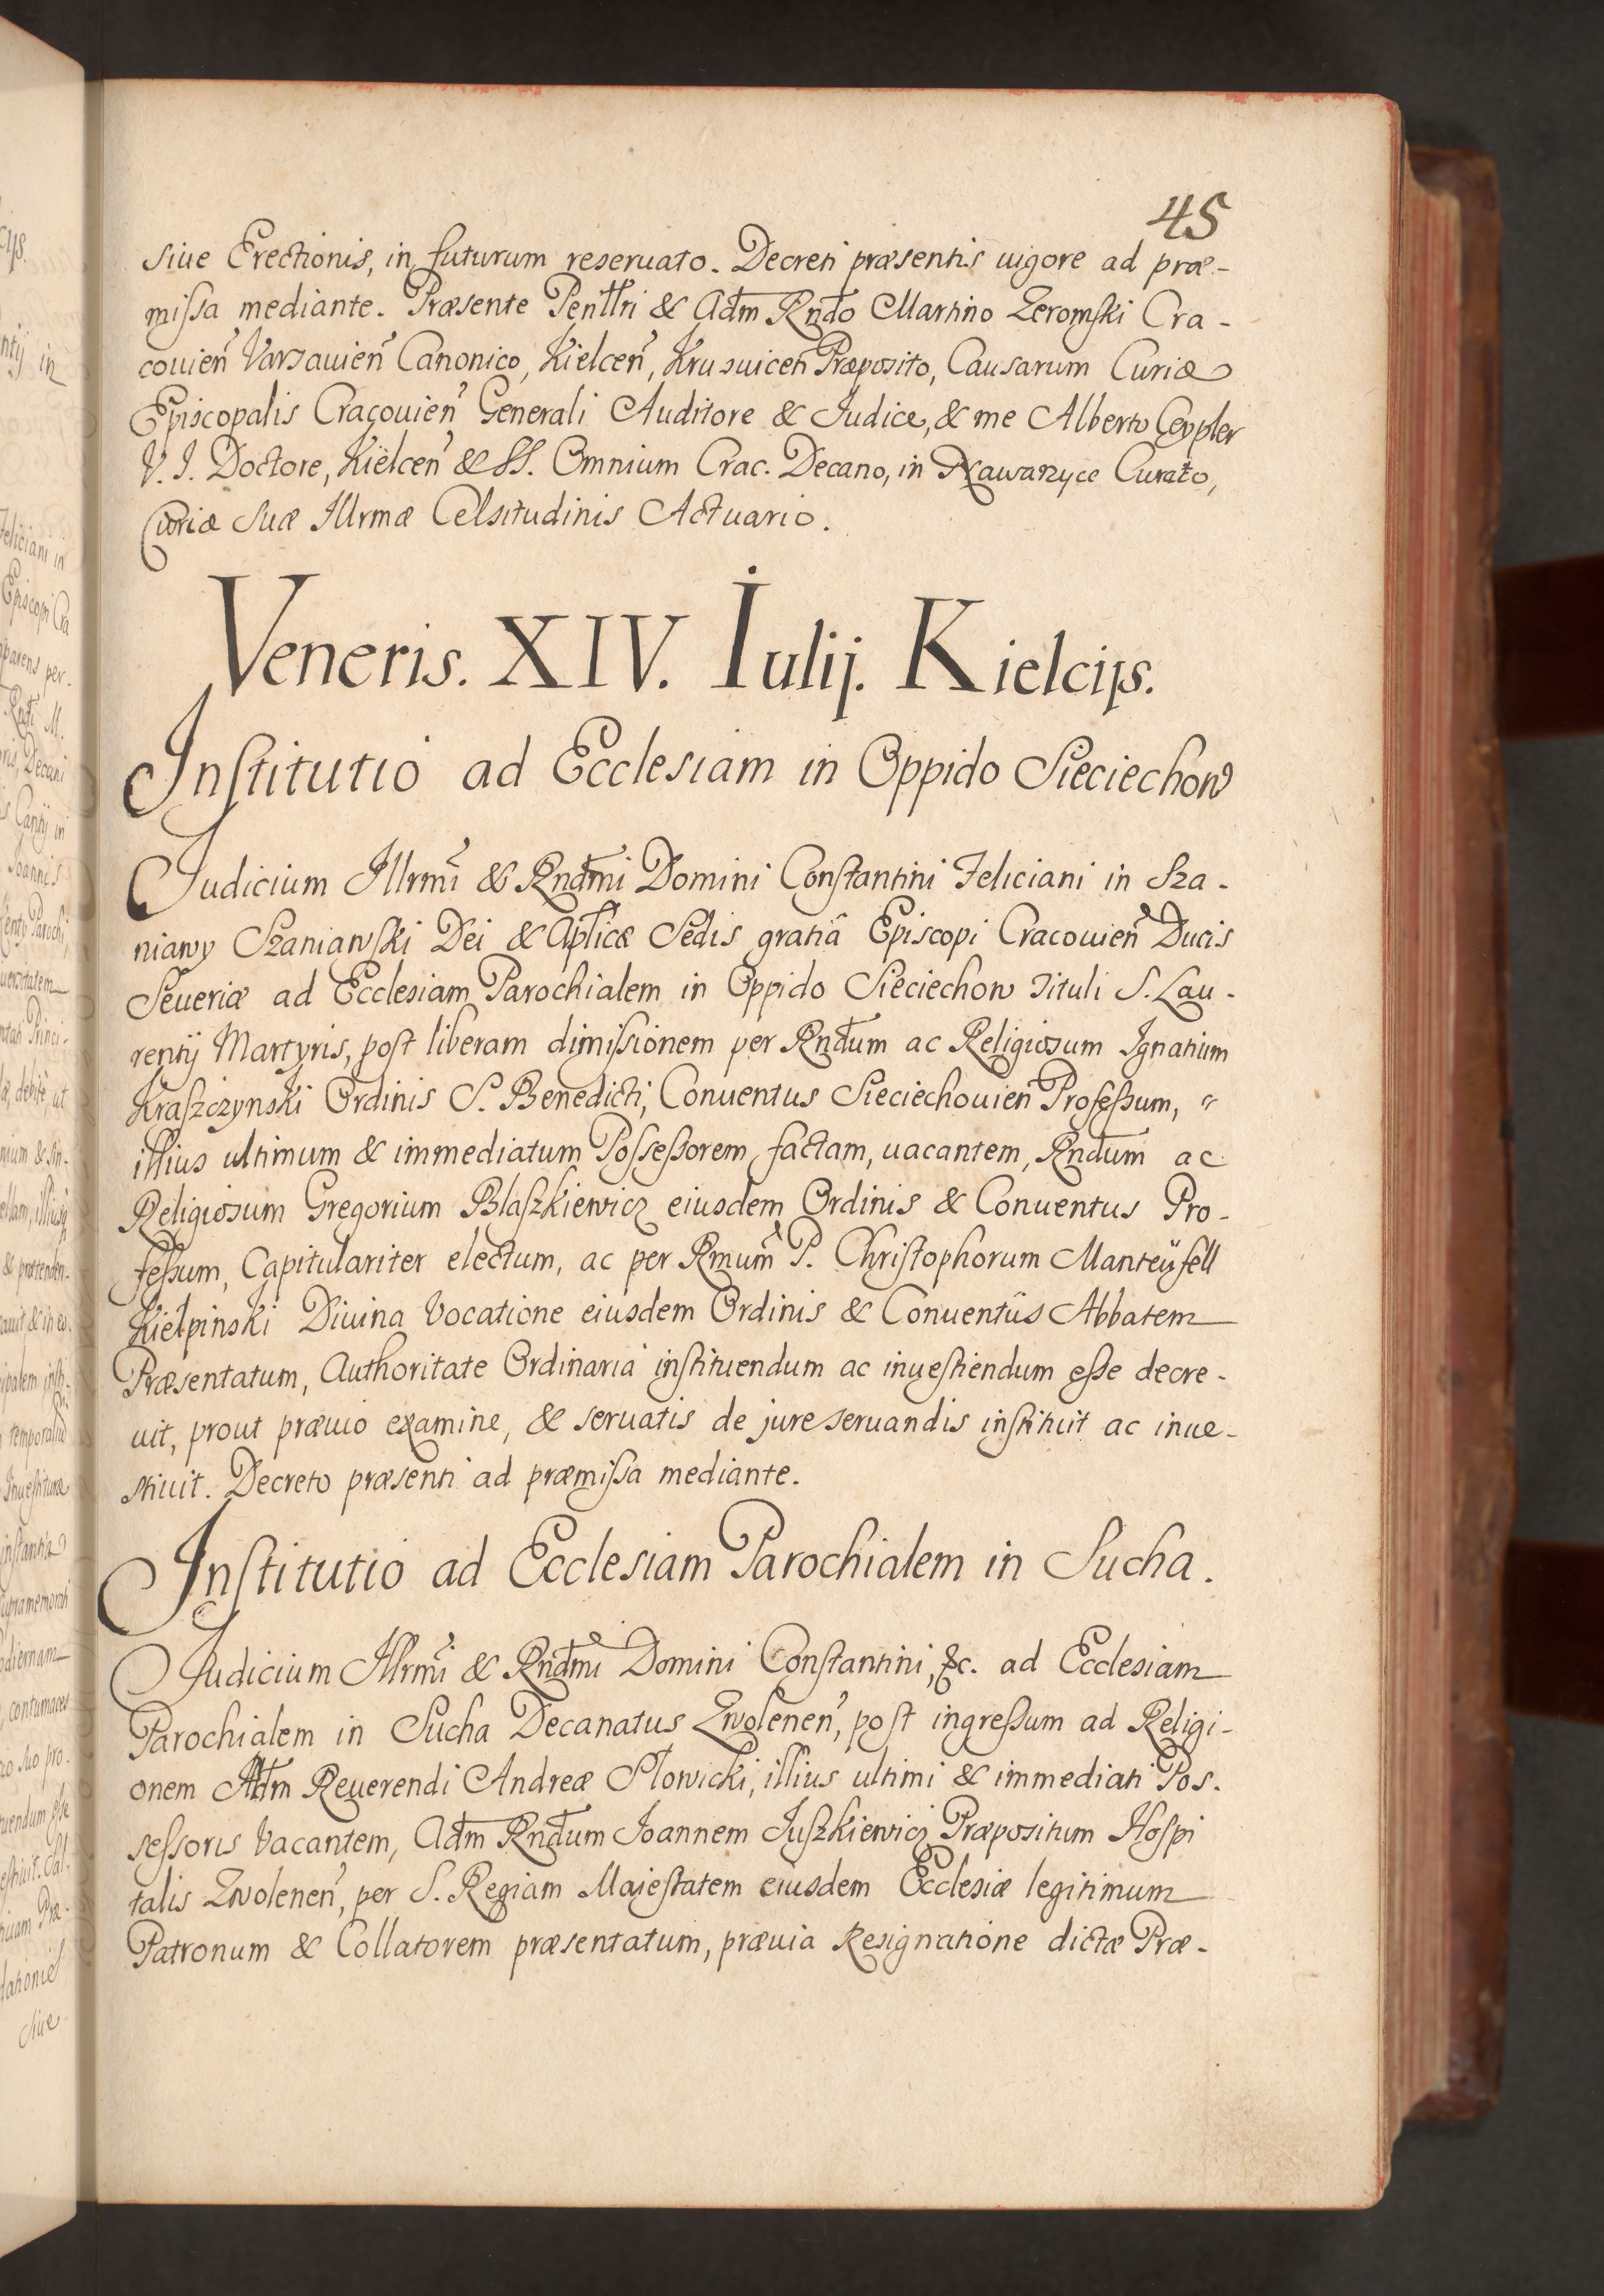 45
siue Erectionis, in futurum reseruato. Decreti præsentis uigore ad præ-
missa mediante. Præsente Penlłri & Adm Rndo Martino Zeromski Cra-
couien Varsauien Canonico, Kielcen, Krusuicen Præposito, Causarum Curiæ
Episcopalis Cracouien Generali Auditore & Judice, & me Alberto Ceypler
V. J. Doctore, Kielcen & SS. Omnium Crac. Decano, in Nawarzyce Curato,
Curiæ Suæ Illrmæ Celsitudinis Actuario.
Veneris. XIV. Iulij. Kielcijs.
Institutio ad Ecclesiam in Oppido Sieciechow
Judicium Illrmi & Rndmi Domini Constantini Feliciani in Sza-
niawy Szaniawski Dei & Aplicæ Sedis gratiâ Episcopi Cracouien Ducis
Seueriæ ad Ecclesiam Parochialem in Oppido Sieciechow Tituli S. Lau-
rentij Martyris, post liberam dimissionem per Rndum ac Religiosum Ignatium
Kraszczynski Ordinis S. Benedicti, Conuentus Sieciechouien Professum,
illius ultimum & immediatum Possessorem factam, uacantem, Rndum ac
Religiosum Gregorium Blaszkiewicz eiusdem Ordinis & Conuentus Pro-
fessum, Capitulariter electum, ac per Rmum P. Christophorum Manteÿfell
Kiełpinski Diuina Vocatione eiusdem Ordinis & Conuentûs Abbatem
Præsentatum, Authoritate Ordinaria instituendum ac inuestiendum esse decre-
uit, prout præuio examine, & seruatis de jure seruandis instituit ac inue-
stiuit. Decreto præsenti ad præmissa mediante.
Institutio ad Ecclesiam Parochialem in Sucha.
Judicium Illrmi & Rndmi Domini Constantini, &c. ad Ecclesiam
Parochialem in Sucha Decanatus Zwolenen, post ingressum ad Religi-
onem Adm Reuerendi Andreæ Slowicki, illius ultimi & immediati Pos-
sessoris Vacantem, Adm Rndum Joannem Juszkiewicz Præpositum Hospi
talis Zwolenen, per S. Regiam Maiestatem eiusdem Ecclesiæ legitimum
Patronum & Collatorem præsentatum, præuia Resignatione dictæ Præ-